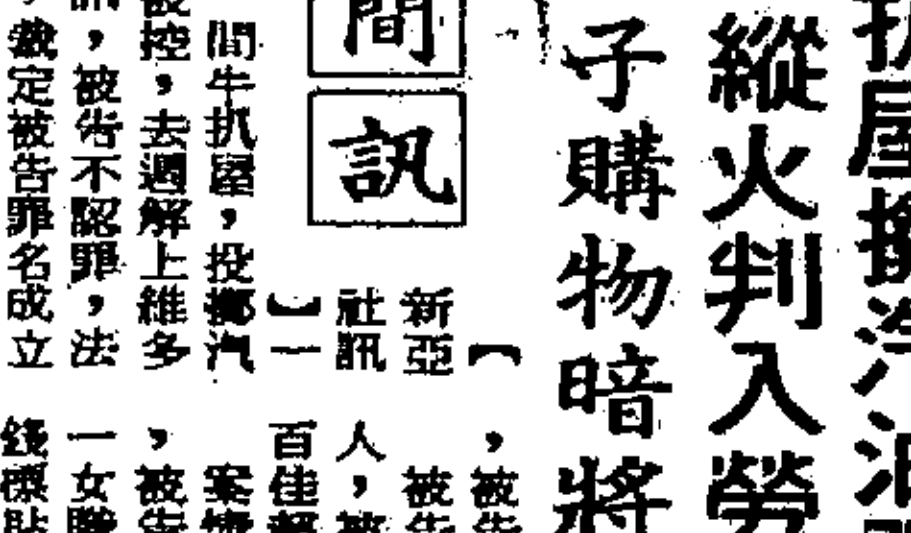 扒屋擲汽油
縱火判入勞
子購物暗將
間訊
【
新亞
社訊
】一
間牛扒屋，投擲汽
被控，去週解上維多
訊，被告不認罪，法
，裁定被告罪名成立
，被告
被告
人，被
百佳超
案情
，被告
一女職
錢標貼